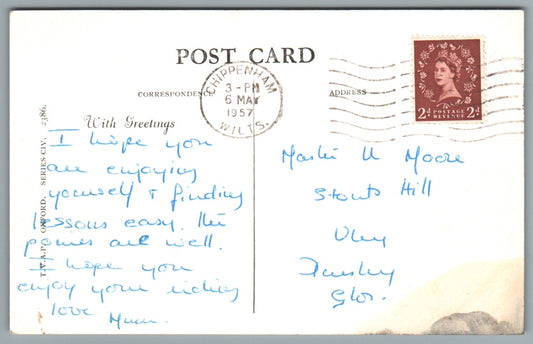 POST CARD
CORRESPONDENCE
ADDRESS
CHIPPENHAM
3-PM
6 MAY
1957
WILTS.
2D POSTAGE REVENUE 2D
T.V.A.P. OXFORD. SERIES CIV, 2386.
With Greetings
I hope you
are enjoying
yourself & finding
lessons easy. The
ponies are well.
I hope you
enjoy your riding
love Mum.
Master N Moore
Stouts Hill
Uley
Dursley
Glos.